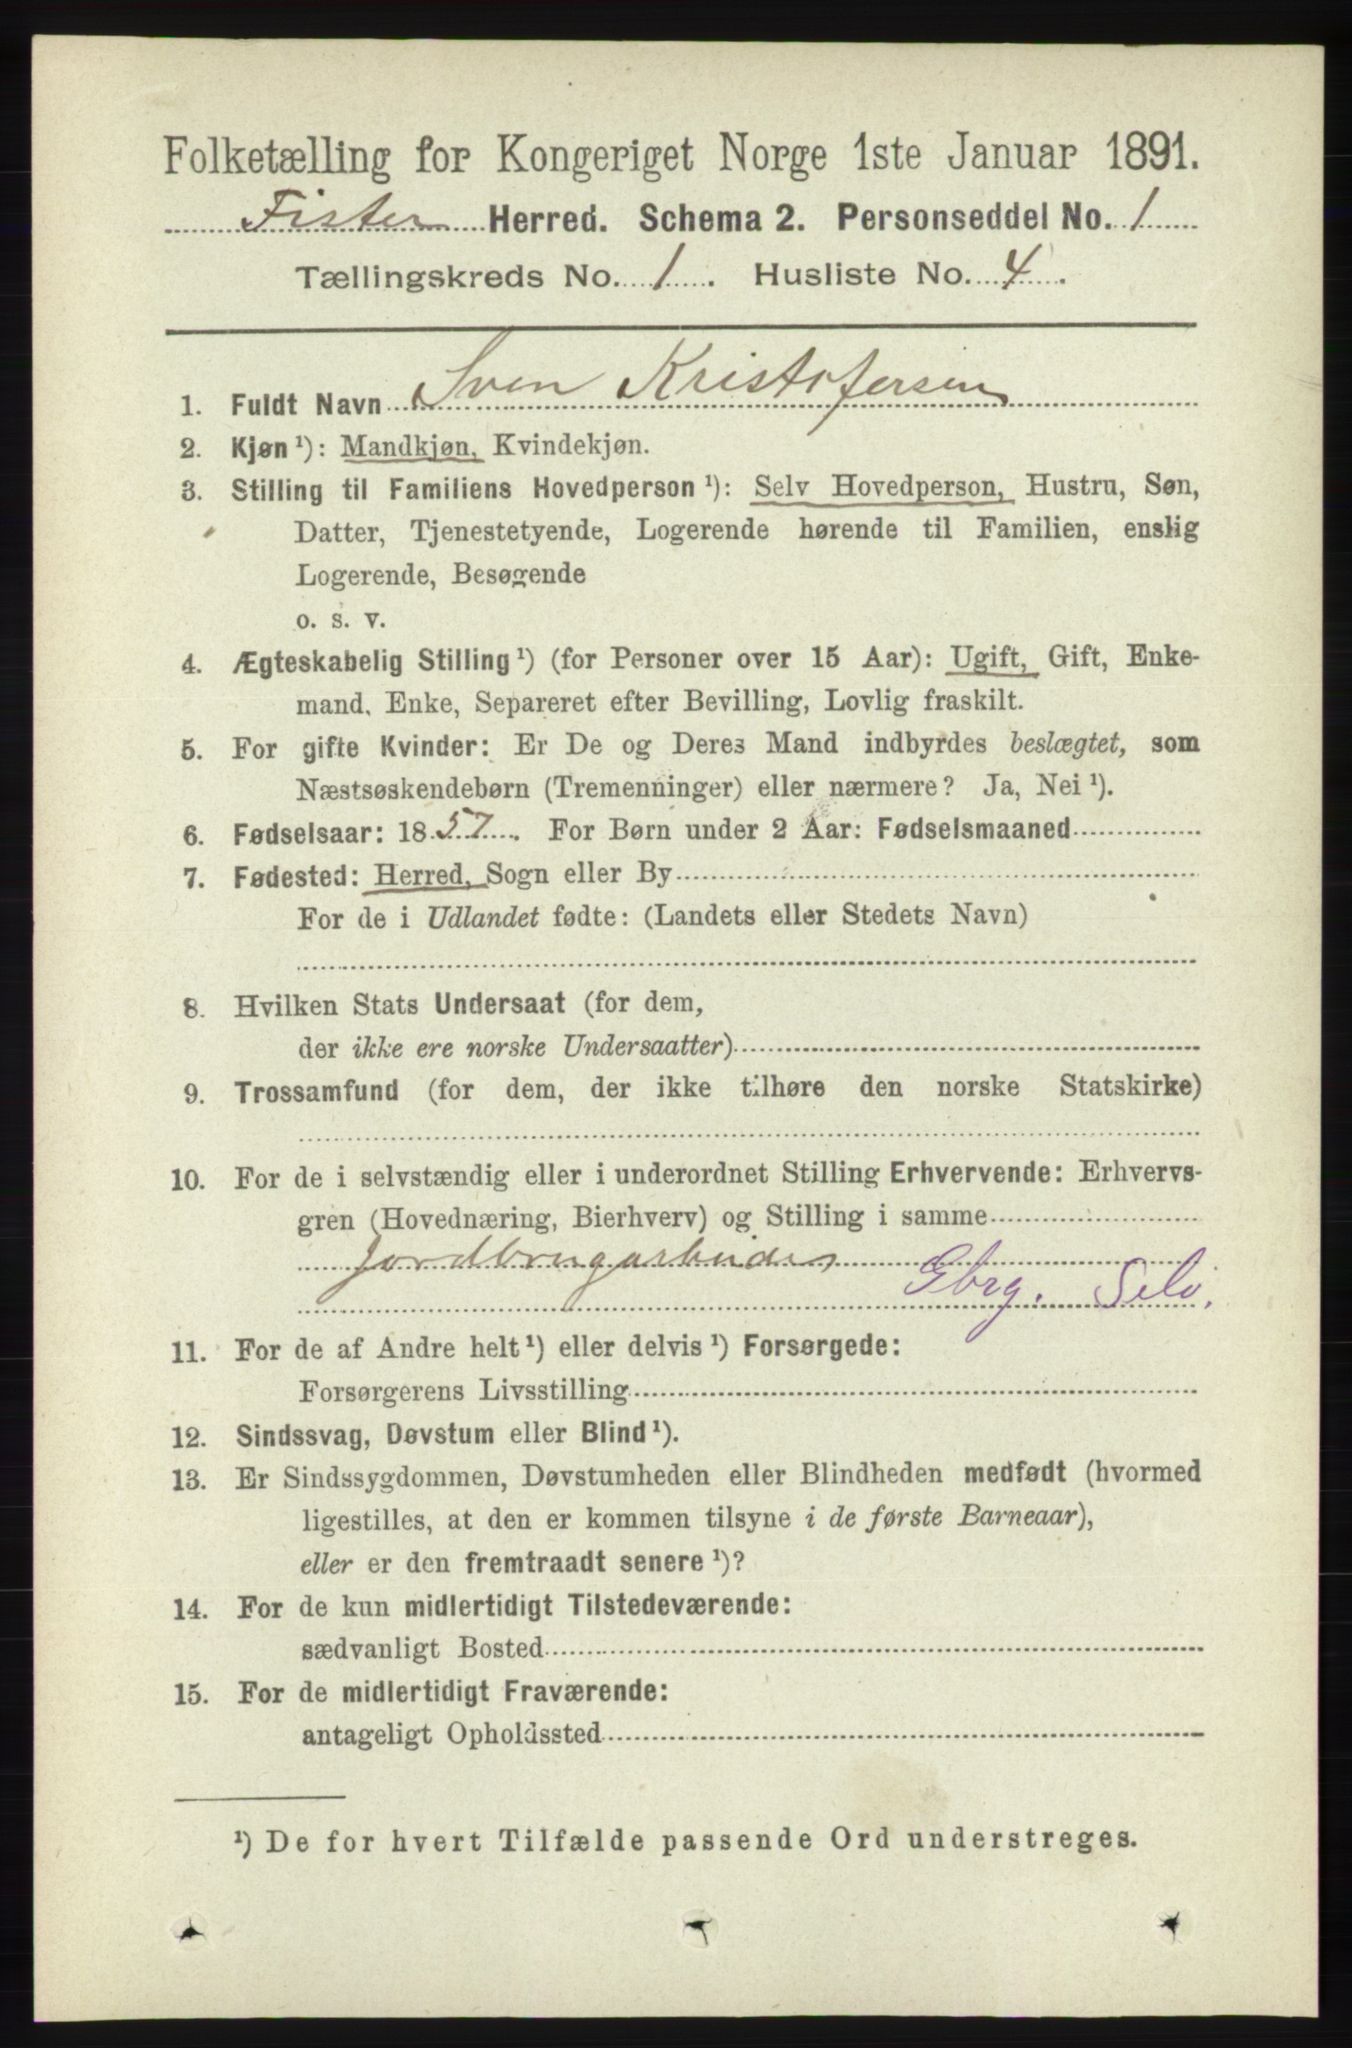 Folketælling for Kongeriget Norge 1ste Januar 1891.
Fister Herred. Schema 2. Personseddel No. 1
Tællingskreds No. 1. Husliste No. 4.
1. Fuldt Navn Sven Kristofersen
2. Kjøn ¹): Mandkjøn, Kvindekjøn.
3. Stilling til Familiens Hovedperson ¹): Selv Hovedperson, Hustru, Søn,
Datter, Tjenestetyende, Logerende hørende til Familien, enslig
Logerende, Besøgende
o. s. v.
4. Ægteskabelig Stilling ¹) (for Personer over 15 Aar): Ugift, Gift, Enke-
mand, Enke, Separeret efter Bevilling, Lovlig fraskilt.
5. For gifte Kvinder: Er De og Deres Mand indbyrdes beslægtet, som
Næstsøskendebørn (Tremenninger) eller nærmere? Ja, Nei ¹).
6. Fødselsaar: 1857. For Børn under 2 Aar: Fødselsmaaned
7. Fødested: Herred, Sogn eller By
For de i Udlandet fødte: (Landets eller Stedets Navn)
8. Hvilken Stats Undersaat (for dem,
der ikke ere norske Undersaatter)
9. Trossamfund (for dem, der ikke tilhøre den norske Statskirke)
10. For de i selvstændig eller i underordnet Stilling Erhvervende: Erhvervs-
gren (Hovednæring, Bierhverv) og Stilling i samme
Jordbrugarbeider
Gbrg. Selv.
11. For de af Andre helt ¹) eller delvis ¹) Forsørgede:
Forsørgerens Livsstilling
12. Sindssvag, Døvstum eller Blind ¹).
13. Er Sindssygdommen, Døvstumheden eller Blindheden medfødt (hvormed
ligestilles, at den er kommen tilsyne i de første Barneaar),
eller er den fremtraadt senere ¹)?
14. For de kun midlertidigt Tilstedeværende:
sædvanligt Bosted
15. For de midlertidigt Fraværende:
antageligt Opholdssted
¹) De for hvert Tilfælde passende Ord understreges.